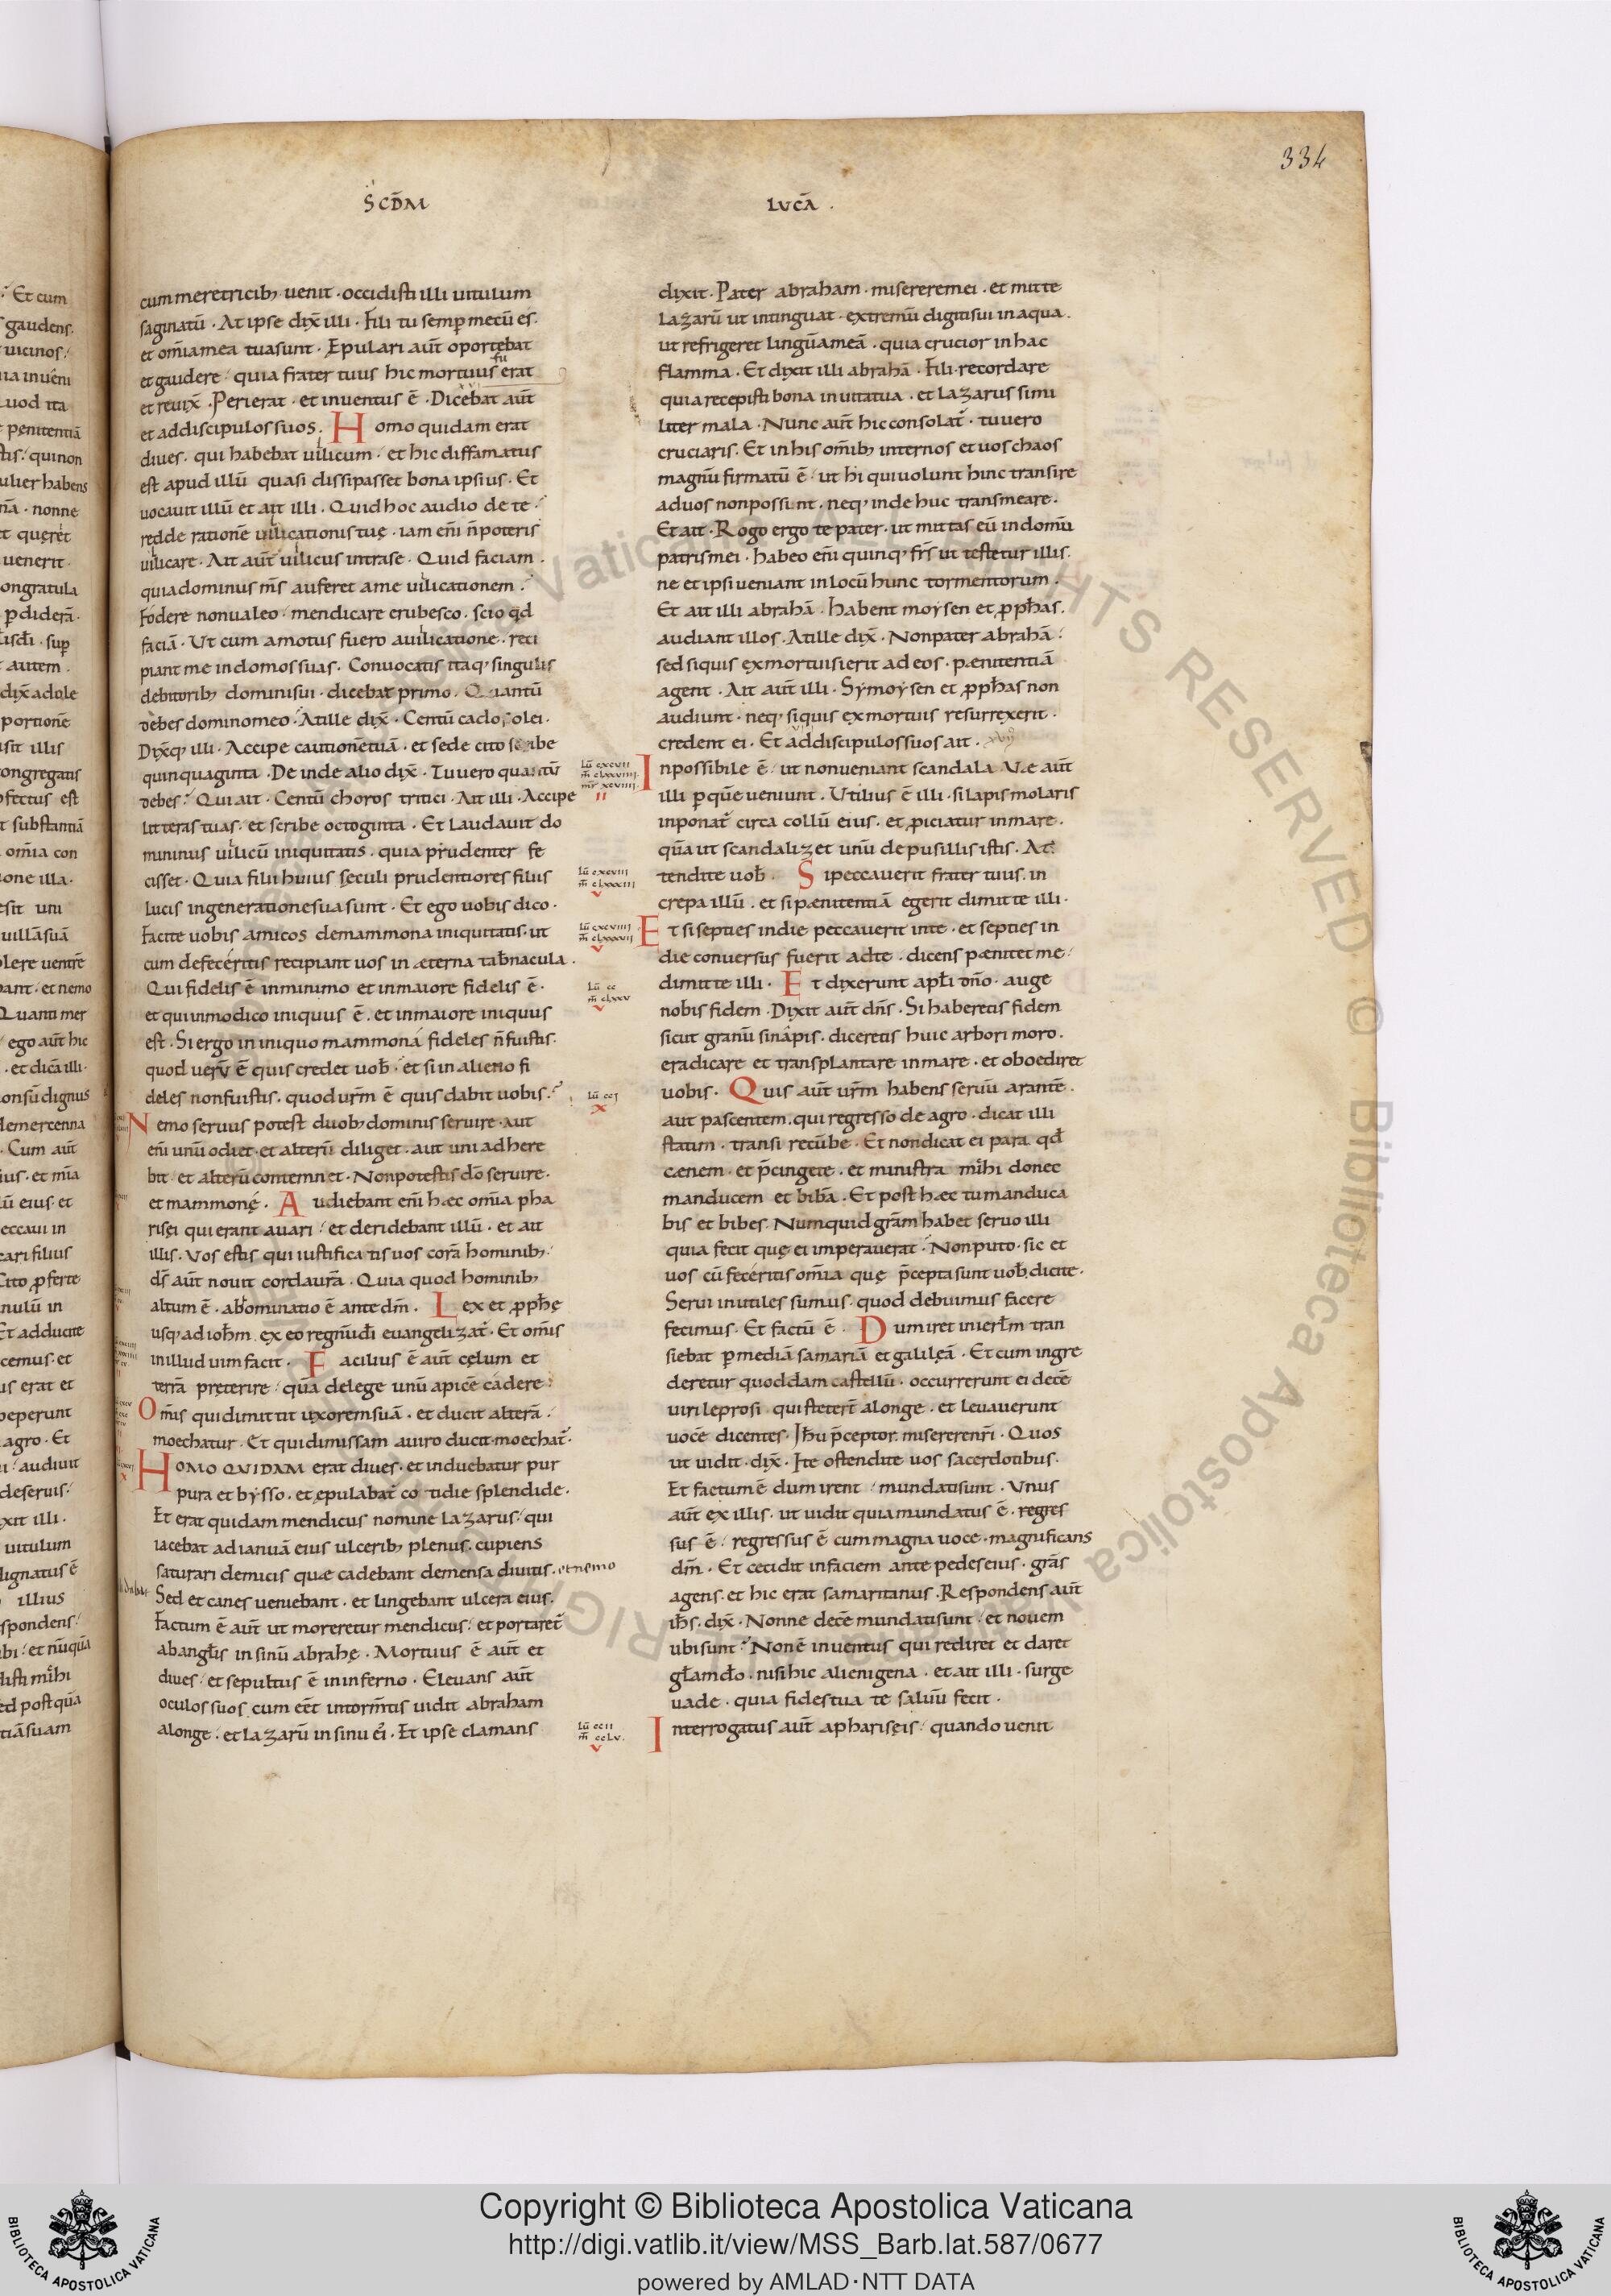 334
ScD̄M LVCĀ.
cum meretricib; uenit · occidisti illi uitulum
saginatū · At ipse dix̄ illi · Fili tu semp̱ mecū es ·
et om̄ia mea tua sunt · Epulari aūt oportebat
et gaudere · quia frater tuus hic mortuus fu erat
et reuix̄ · Perierat · et inuentus ē · Dicebat aūt
et ad discipulos suos · Homo quidam erat
diues · qui habebat uilicum · et hic diffamatus
est apud illū quasi dissipasset bona ipsius · Et
uocauit illū et ait illi · Quid hoc audio de te ·
redde rationē uilicationis tuę · iam eni̅ n̄ poteris
uilicare · Ait aūt uilicus intra se · Quid faciam ·
quia dominus m̄s auferet a me uilicationem ·
Fodere non ualeo · mendicare erubesco · scio qd̄
faciā · Ut cum amotus fuero a uilicatione · reci
piant me in domos suas · Conuocatis itaq; singulis
debitorib; domini sui · dicebat primo · Quantū
debes domino meo · At ille dix̄ · Centū cados olei ·
Dix̄q; illi · Accipe cautionē tuā · et sede cito scribe
quinquaginta · Deinde alio dix̄ · Tu uero quantū
debes · Qui ait · Centū choros tritici · Ait illi · Accipe
litteras tuas · et scribe octoginta · Et laudauit do
mininus uilicū iniquitatis · quia prudenter fe
cisset · Quia filii huius sęculi prudentiores filiis
lucis in generatione sua sunt · Et ego uobis dico ·
Facite uobis amicos de mammona iniquitatis · ut
cum defeceritis recipiant uos in æterna tab̄nacula ·
Qui fidelis ē in minimo et in maiore fidelis ē ·
et qui in modico iniquus ē · et in maiore iniquus
est · Si ergo in iniquo mammona fideles n̄ fuistis ·
quod uerū ē quis credet uob̄ · et si in alieno fi
deles non fuistis · quod ur̄m ē quis dabit uobis ·
Nemo seruus potest duob; dominis seruire · aut
eni̅ unū odiet · et alterū diliget · aut uni adhere
bit · et alterū contemnet · Non potestis dō seruire ·
et mammonę · Audiebant eni̅ hæc om̄ia pha
risęi qui erant auari · et deridebant illū · et ait
illis · Vos estis qui iustificatis uos corā hominib; ·
d̄s aūt nouit corda ur̄a · Quia quod hominib;
altum ē · abominatio ē ante dm̄ · Lex et p̱ph̄ę
usq; ad ioh̄m ex eo regnū dī euangelizat̄ · Et om̄is
in illud uim facit · Facilius ē aūt cęlum et
terrā pręterire · quā de lege unū apicē cadere ·
Om̄is qui dimittit uxorem suā · et ducit alterā ·
moechatur · Et qui dimissam a uiro ducit · moechat̄ ·
HOMO QVIDAM erat diues · et induebatur pur
pura et bysso · et epulabat̄ cotidie splendide ·
Et erat quidam mendicus nomine lazarus · qui
iacebat ad ianuā eius ulcerib; plenus · cupiens
saturari de micis quæ cadebant de mensa diuitis · et nemo
illi dabat Sed et canes ueniebant · et lingebant ulcera eius ·
Factum ē aūt ut moreretur mendicus · et portaret̄
ab angl̄is in sinū abrahę · Mortuus ē aūt et
diues · et sepultus ē in inferno · Eleuans aūt
oculos suos cum eēt in torm̄tis uidit abraham
a longe · et lazarū in sinu ei᷒ · Et ipse clamans
dixit · Pater abraham · miserere mei · et mitte
lazarū ut intinguat · extremū digiti sui in aqua ·
ut refrigeret linguā meā · quia crucior in hac
flamma · Et dixit illi abrahā · Fili · recordare
quia recepisti bona in uita tua · et lazarus simi
liter mala · Nunc aūt hic consolat̄ · tu uero
cruciaris · Et in his om̄ib; inter nos et uos chaos
magnū firmatū ē · ut hi qui uolunt hinc transire
ad uos non possint · neq; inde huc transmeare ·
Et ait · Rogo ergo te pater · ut mittas eū in domū
patris mei · habeo eni̅ quinq; fr̄s ut testetur illis ·
ne et ipsi ueniant in locū hunc tormentorum ·
Et ait illi abrahā · Habent moysen et p̱ph̄as ·
audiant illos · At ille dix̄ · Non pater abrahā ·
sed si quis ex mortuis ierit ad eos · pænitentiā
agent · Ait aūt illi · Sy moysen et p̱ph̄as non
audiunt · neq; si quis ex mortuis resurrexerit ·
credent ei · Et ad discipulos suos ait ·
lū cxcvii
m̄ clxxviiii
mr̄ xcviiii
ii
Inpossibile ē · ut non ueniant scandala · Ve aūt
illi p̱ quē ueniunt · Utilius ē illi · si lapis molaris
inponat̄ circa collū eius · et p̱iciatur in mare ·
quā ut scandalizet unū de pusillis istis · At
lū cxcviii
m̄ clxxxiii
v
tendite uob̄ · Si peccauerit frater tuus · in
crepa illū · et si pænitentiā egerit dimitte illi ·
lū cxcviiii
m̄ clxxxvii
v
Et si septies in die peccauerit in te · et septies in
die conuersus fuerit ad te · dicens pænitet me ·
lū cc
m̄ clxxv
v
dimitte illi · Et dixerunt apl̄i dn̄o · auge
nobis fidem · Dixit aūt dn̄s · Si haberetis fidem
sicut granū sinapis · diceretis huic arbori moro ·
eradicare et transplantare in mare · et oboediret
lū cci
x
uobis · Quis aūt ur̄m habens seruū arantē ·
aut pascentem · qui regresso de agro · dicat illi
statim · transi recūbe · Et non dicat ei para qd̄
cænem · et p̄cingete · et ministra mihi donec
manducem et bibā · Et post hæc tu manduca
bis et bibes · Numquid grām habet seruo illi
quia fecit quę ei imperauerat · Non puto · sic et
uos cū feceritis om̄ia quę p̄cepta sunt uob̄, dicite ·
Serui inutiles sumus · quod debuimus facere
fecimus · Et factū ē · Dum iret in ierl̄m tran
siebat p̱ mediā samariā et galilęā · Et cum ingre
deretur quoddam castellū · occurrerunt ei decē
uiri leprosi · qui steter̄t a longe · et leuauerunt
uocē dicentes · Ih̄u p̄ceptor miserere nr̄i · Quos
ut uidit · dix̄ · Ite ostendite uos sacerdotibus ·
Et factum ē dum irent · mundati sunt · Unus
aūt ex illis · ut uidit quia mundatus ē · regres
sus ē · regressus ē cum magna uoce · magnificans
dm̄ · Et cecidit in faciem ante pedes eius · grās
agens · et hic erat samaritanus · Respondens aūt
ih̄s · dix̄ · Nonne decē mundati sunt · et nouem
ubi sunt · Non ē inuentus qui rediret et daret
gl̄am dō · nisi hic alienigena · et ait illi · surge
uade · quia fides tua te saluū fecit ·
lū ccii
m̄ cclv.
v
Interrogatus aūt a phariseis · quando uenit
Copyright © Biblioteca Apostolica Vaticana
http://digi.vatlib.it/view/MSS_Barb.lat.587/0677
powered by AMLAD·NTT DATA
BIBLIOTECA APOSTOLICA VATICANA
BIBLIOTECA APOSTOLICA VATICANA